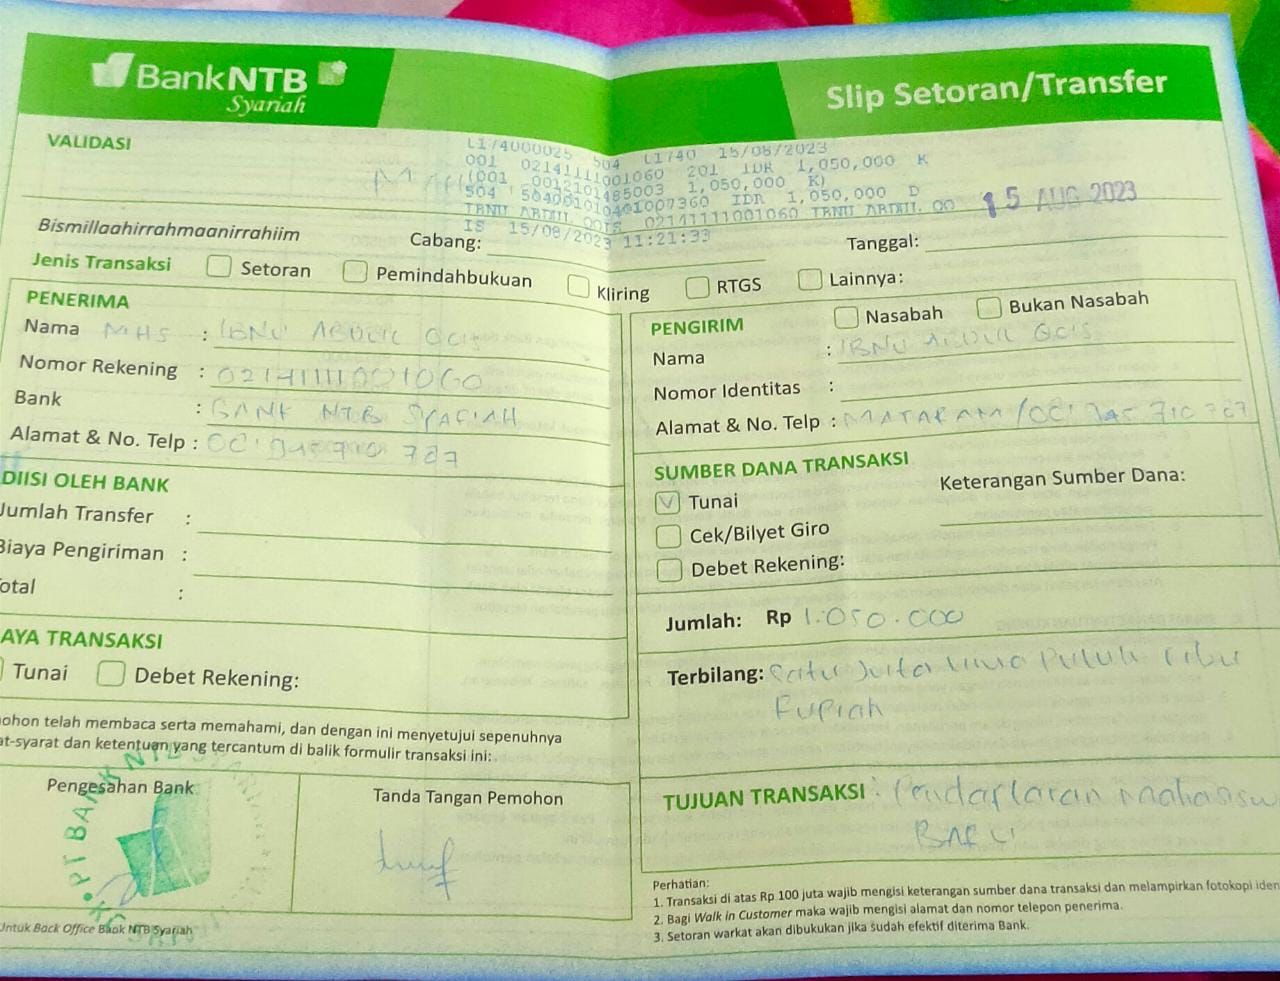 BankNTB
Syariah
Slip Setoran/Transfer
VALIDASI
L1740 15/08/2023
001 02141111001060 201 IDR 1,050,000 K
(001 0012101485003 1,050,000 K)
504 IDR 1,050,000 D
02141111001060
IS 15/08/2023 11:21:33
15 AUG 2023
Bismillaahirrahmaanirrahiim
Cabang:
Tanggal:
Jenis Transaksi
Setoran
Pemindahbukuan
Kliring
RTGS
Lainnya:
PENERIMA
Nama MHS : IBNU ABDUL QOIS
Nomor Rekening : 02141111001060
Bank : BANK NTB SYARIAH
Alamat & No. Telp :
DIISI OLEH BANK
Jumlah Transfer :
Biaya Pengiriman :
otal :
AYA TRANSAKSI
Tunai
Debet Rekening:
ohon telah membaca serta memahami, dan dengan ini menyetujui sepenuhnya
at-syarat dan ketentuan yang tercantum di balik formulir transaksi ini:
Pengesahan Bank
PT BANK NTB
Tanda Tangan Pemohon
Untuk Back Office Bank NTB Syariah
PENGIRIM
Nasabah
Bukan Nasabah
Nama : IBNU ABDUL QOIS
Nomor Identitas :
Alamat & No. Telp : MATARAM/
SUMBER DANA TRANSAKSI
Keterangan Sumber Dana:
Tunai
Cek/Bilyet Giro
Debet Rekening:
Jumlah: Rp 1.050.000
Terbilang: Satu Juta Lima Puluh Ribu
Rupiah
TUJUAN TRANSAKSI : Pendaftaran Mahasisw
BARU
Perhatian:
1. Transaksi di atas Rp 100 juta wajib mengisi keterangan sumber dana transaksi dan melampirkan fotokopi iden
2. Bagi Walk in Customer maka wajib mengisi alamat dan nomor telepon penerima.
3. Setoran warkat akan dibukukan jika sudah efektif diterima Bank.